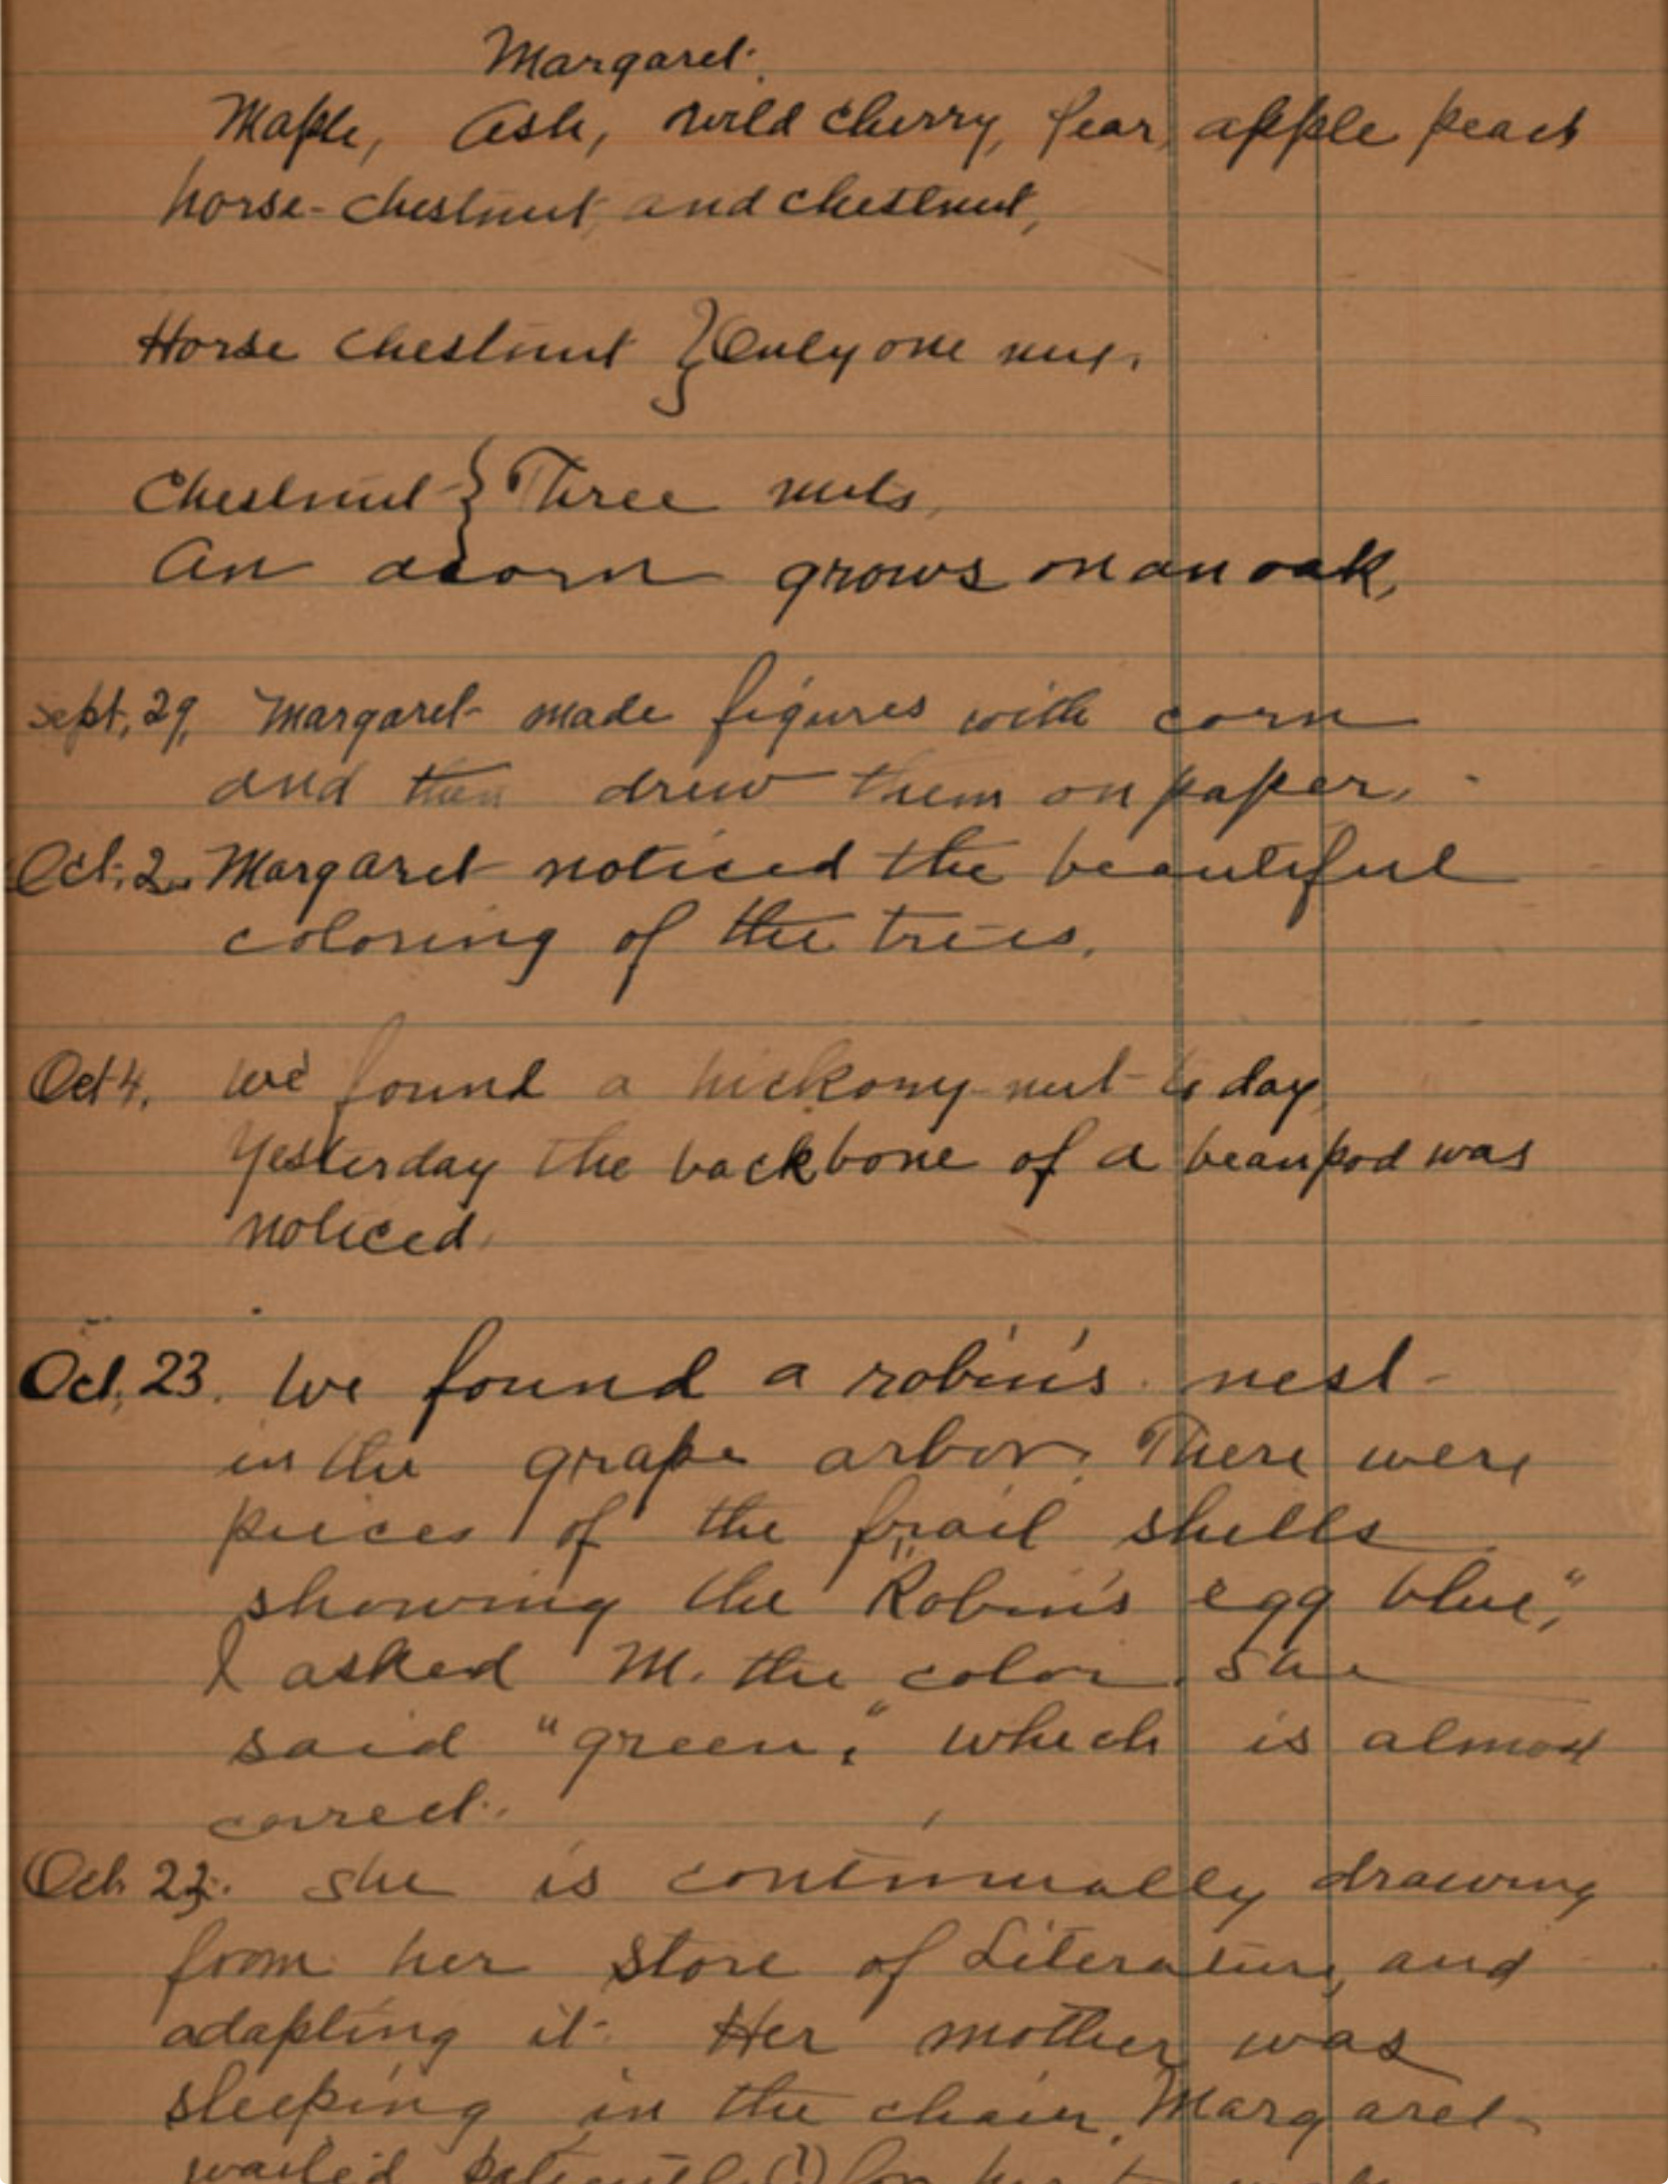 Margaret.
Maple, Ash, wild cherry, pear, apple peach
horse-chestnut, and chestnut,
Horse chestnut } Only one nut.
Chestnut } Three nuts,
An acorn grows on an oak,
Sept, 29, Margaret made figures with corn
and then drew them on paper.
Oct. 2. Margaret noticed the beautiful
coloring of the trees.
Oct 4. We found a hickory nut to day,
Yesterday the backbone of a beanpod was
noticed.
Oct, 23. We found a robin's nest
in the grape arbor. There were
pieces of the frail shells
showing the "Robin's egg blue",
I asked M. the color. She
said "green," which is almost
correct.
Oct. 23. She is continually drawing
from her store of Literature, and
adapting it. Her mother was
sleeping in the chair. Margaret
waited patiently (!) for her to